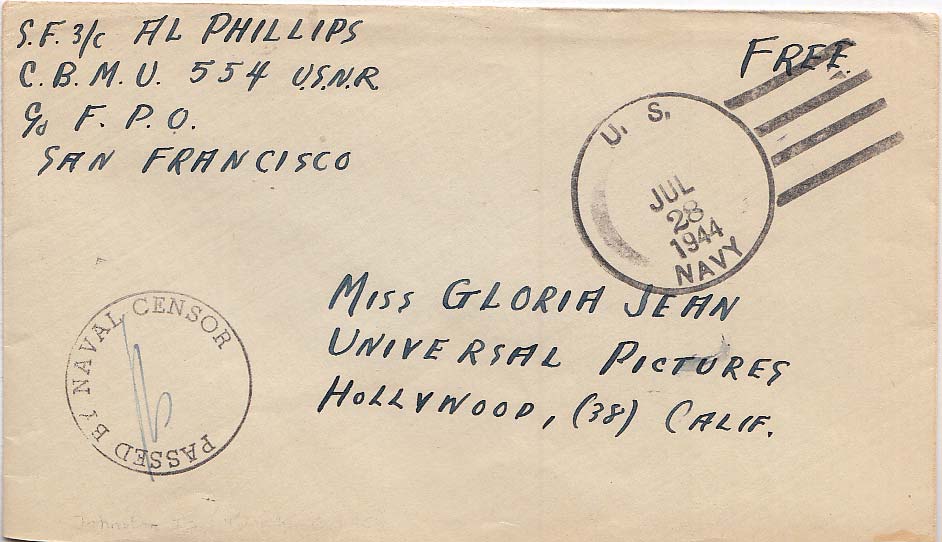 S.F. 3/c AL PHILLIPS
C.B.M.U. 554 U.S.N.R.
c/o F. P. O.
SAN FRANCISCO
FREE.
U. S.
JUL
28
1944
NAVY
MISS GLORIA JEAN
UNIVERSAL PICTURES
HOLLYWOOD, (38) CALIF.
PASSED BY NAVAL CENSOR